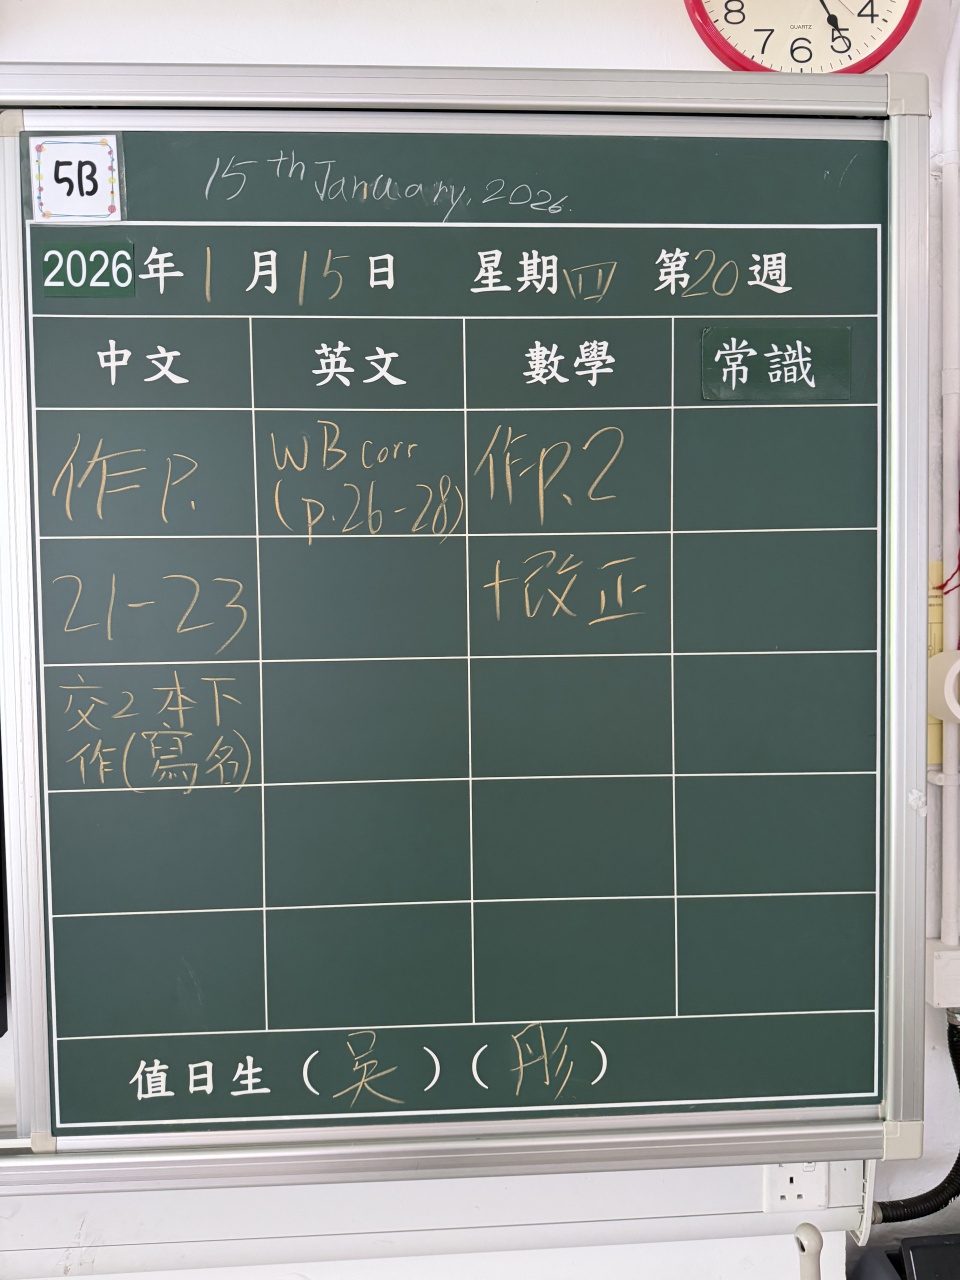 8 7 6 5 4
QUARTZ
5B
15th January, 2026.
2026年1月15日 星期四 第20週
中文 英文 數學 常識
作P. WB corr 作P.2
(p.26-28)
21-23 +改正
交2本下
作(寫名)
值日生(吴)(彤)